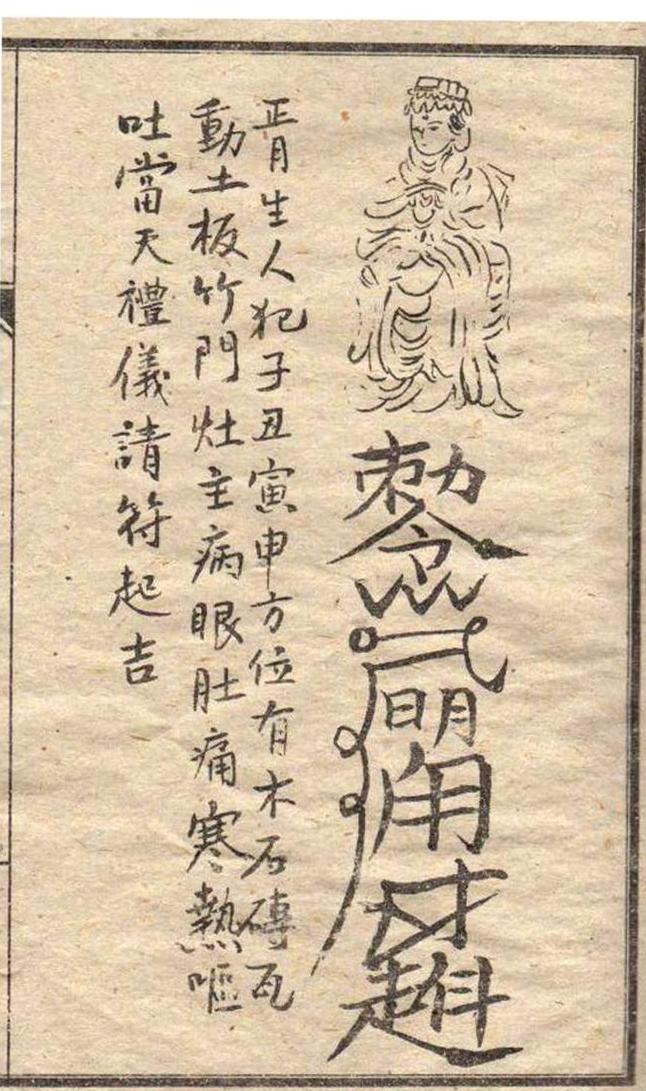 勅令 日月
正月生人犯子丑寅申方位有木石磚瓦
動土板竹門灶主病眼肚痛寒熱嘔
吐當天禮儀請符起吉